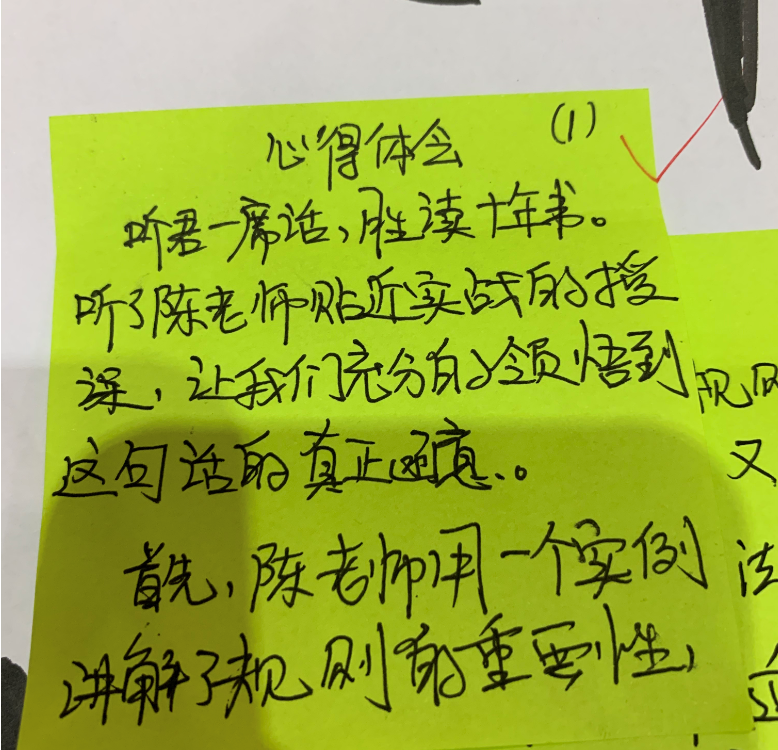 心得体会 (1)
听君一席话,胜读十年书。
听了陈老师贴近实战的授
课,让我们充分的领悟到
这句话的真正寓意。
首先,陈老师用一个实例
讲解了规则的重要性,
规
又
法